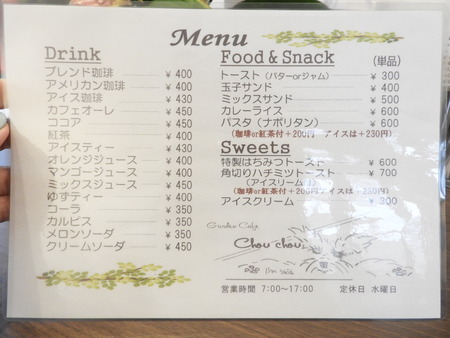 Menu
Drink
ブレンド珈琲 ¥ 400
アメリカン珈琲 ¥ 400
アイス珈琲 ¥ 430
カフェオーレ ¥ 450
ココア ¥ 450
紅茶 ¥ 400
アイスティー ¥ 430
オレンジジュース ¥ 400
マンゴージュース ¥ 400
ミックスジュース ¥ 450
ゆずティー ¥ 400
コーラ ¥ 350
カルピス ¥ 350
メロンソーダ ¥ 350
クリームソーダ ¥ 450
Food & Snack (単品)
トースト (バターorジャム) ¥ 300
玉子サンド ¥ 400
ミックスサンド ¥ 500
カレーライス ¥ 600
パスタ (ナポリタン) ¥ 600
(珈琲or紅茶付+200円 アイスは+230円)
Sweets
特製はちみつトースト ¥ 600
角切りハチミツトースト ¥ 700
(アイスクリーム付)
(珈琲or紅茶付+200円 アイスは+230円)
アイスクリーム ¥ 300
Garden Cafe
Chou chou
営業時間 7:00~17:00 定休日 水曜日